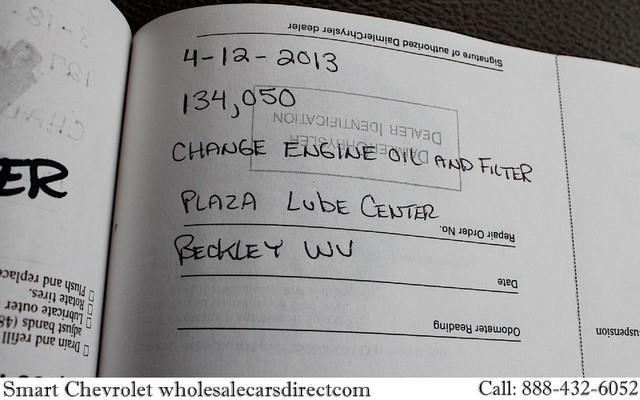 Signature of authorized DaimlerChrysler dealer
4-12-2013
134,050
DEALER IDENTIFICATION
DAIMLERCHRYSLER
CHANGE ENGINE OIL AND FILTER
PLAZA LUBE CENTER
Repair Order No.
BECKLEY WV
Date
Odometer Reading
ER
Flush and replace
Rotate tires.
Lubricate outer
adjust bands (48
Drain and refill
Smart Chevrolet wholesalecarsdirectcom
Call: 888-432-6052